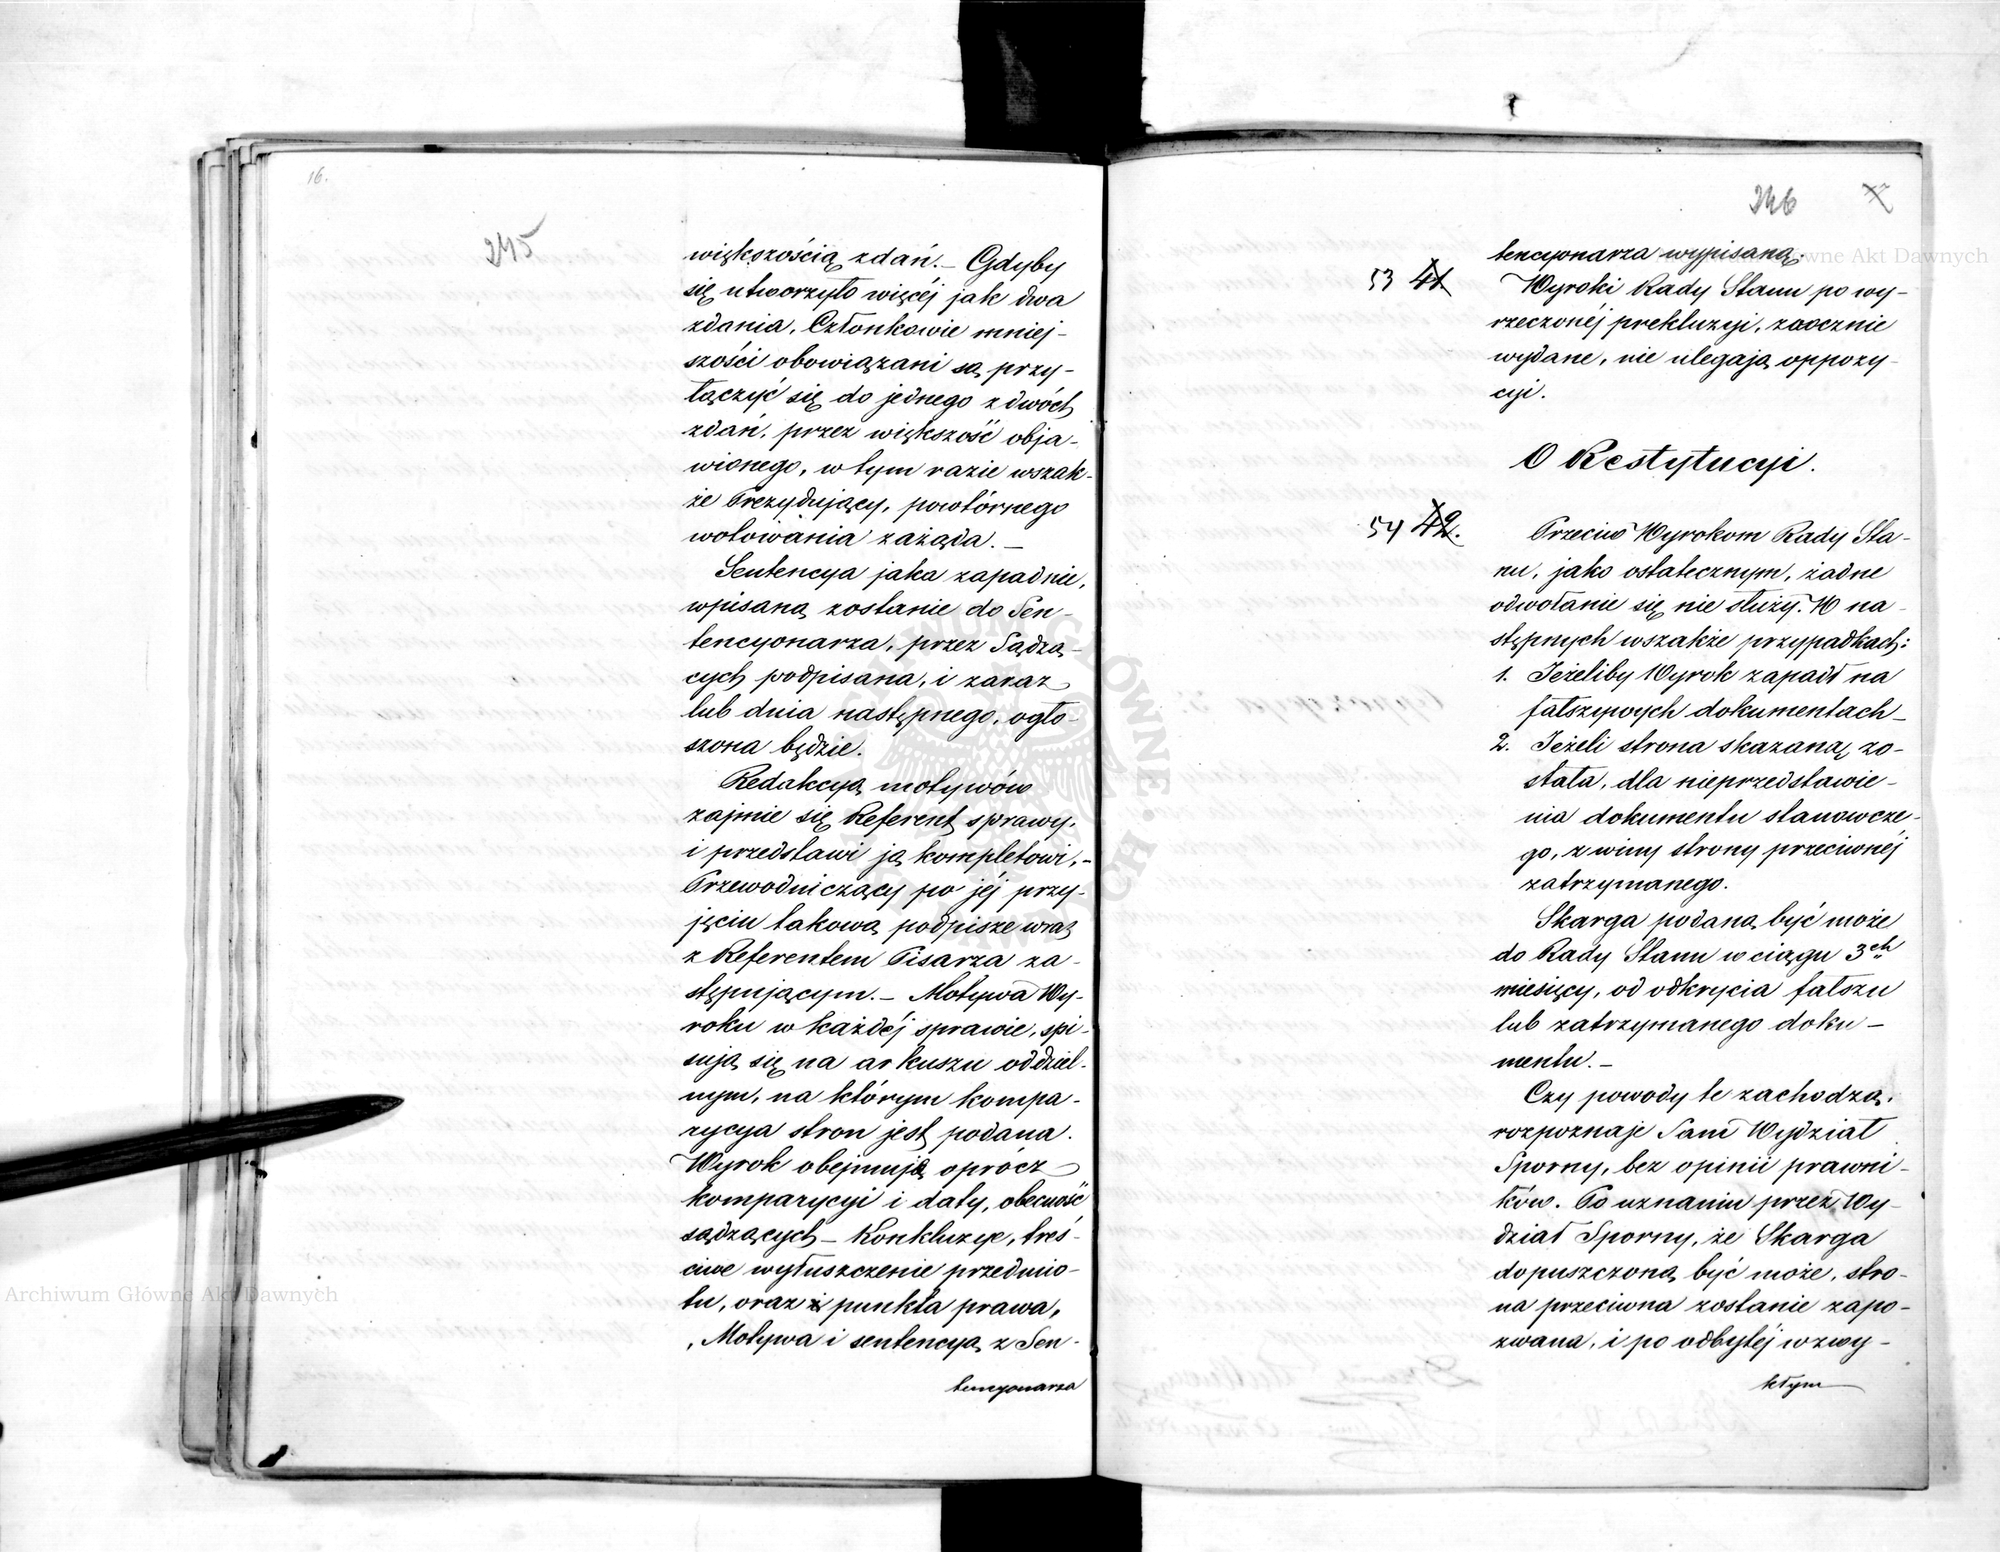 16.
245
większością zdań. – Gdyby
się utworzyło więcéj jak dwa
zdania, Członkowie mniej-
szości obowiązani są przy-
łączyć się do jednego z dwóch
zdań, przez większość obja-
wionego, w tym razie wszak-
że Prezydujący, powtórnego
wotowania zażąda. –
Sentencya jaka zapadnie,
wpisaną zostanie do Sen-
tencyonarza, przez Sądzą-
cych podpisana, i zaraz
lub dnia następnego, ogło-
szona będzie.
Redakcyą motywów
zajmie się Referent sprawy,
i przedstawi ją kompletowi, –
Przewodniczący po jéj przy-
jęciu takową podpisze wraz
z Referentem Pisarza za-
stępującym. – Motywa Wy-
roku w każdéj sprawie, spi-
sują się na arkuszu oddziel-
nym, na którym kompa-
rycya stron jest podana.
Wyrok obejmuje oprócz
komparycyi i daty, obecność
sądzących – Konkluzye, treś-
ciwe wyłuszczenie przedmio-
tu, oraz punkta prawa,
Motywa i sentencyą z Sen-
tencyonarza
246
tencyonarza wypisaną.
53 41
Wyroki Rady Stanu po wy-
rzeczonéj prekluzyi, zaocznie
wydane, nie ulegają oppozy-
cyi.
O Restytucyi.
54 42.
Przeciw Wyrokom Rady Sta-
nu, jako ostatecznym, żadne
odwołanie się nie służy. W na-
stępnych wszakże przypadkach:
1. Jeżeliby Wyrok zapadł na
fałszywych dokumentach –
2. Jeżeli strona skazaną zo-
stała, dla nieprzedstawie-
nia dokumentu stanowcze-
go, z winy strony przeciwnéj
zatrzymanego.
Skarga podaną być może
do Rady Stanu w ciągu 3ch
miesięcy, od odkrycia fałszu
lub zatrzymanego doku-
mentu. –
Czy powody te zachodzą,
rozpoznaje Sam Wydział
Sporny, bez opinii prawni-
ków. Po uznaniu przez Wy-
dział Sporny, że Skarga
dopuszczoną być może, stro-
na przeciwna zostanie zapo-
zwana, i po odbytéj w zwy-
kłym
Archiwum Główne Akt Dawnych
Archiwum Główne Akt Dawnych